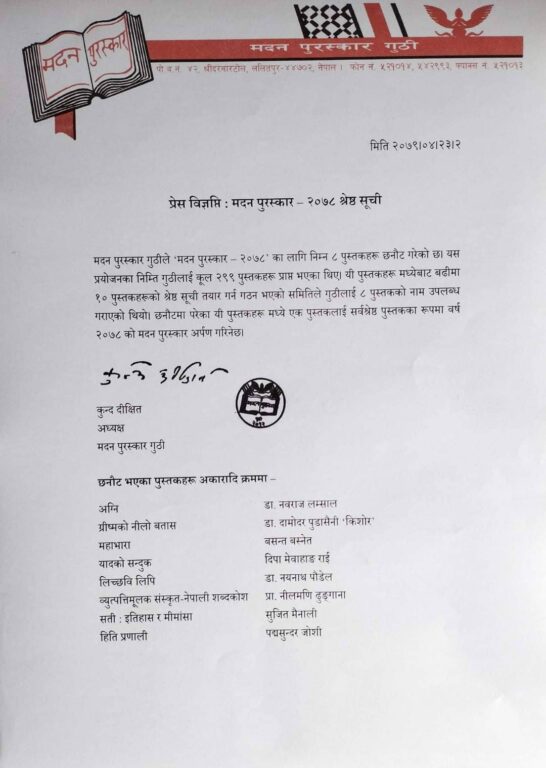 मदन पुरस्कार
मदन पुरस्कार गुठी
पो.ब.नं. ४२, श्रीदरबारटोल, ललितपुर-४४७०२, नेपाल । फोन नं. ५५२१०१४, ५५४२९९३, फ्याक्स नं. ५५२१०१३
मिति २०७९।०४।२३।२
प्रेस विज्ञप्ति : मदन पुरस्कार – २०७८ श्रेष्ठ सूची
मदन पुरस्कार गुठीले ‘मदन पुरस्कार – २०७८’ का लागि निम्न ८ पुस्तकहरू छनौट गरेको छ। यस
प्रयोजनका निम्ति गुठीलाई कूल २९९ पुस्तकहरू प्राप्त भएका थिए। यी पुस्तकहरू मध्येबाट बढीमा
१० पुस्तकहरूको श्रेष्ठ सूची तयार गर्न गठन भएको समितिले गुठीलाई ८ पुस्तकको नाम उपलब्ध
गराएको थियो। छनौटमा परेका यी पुस्तकहरू मध्ये एक पुस्तकलाई सर्वश्रेष्ठ पुस्तकका रूपमा वर्ष
२०७८ को मदन पुरस्कार अर्पण गरिनेछ।
कुन्द दीक्षित
अध्यक्ष
मदन पुरस्कार गुठी
छनौट भएका पुस्तकहरू अकारादि क्रममा –
अग्नि डा. नवराज लम्साल
ग्रीष्मको नीलो बतास डा. दामोदर पुडासैनी ‘किशोर’
महाभारा बसन्त बस्नेत
यादको सन्दुक दिपा मेवाहाङ राई
लिच्छवि लिपि डा. नयनाथ पौडेल
व्युत्पत्तिमूलक संस्कृत-नेपाली शब्दकोश प्रा. नीलमणि ढुङ्गाना
सती : इतिहास र मीमांसा सुजित मैनाली
हिति प्रणाली पद्मसुन्दर जोशी